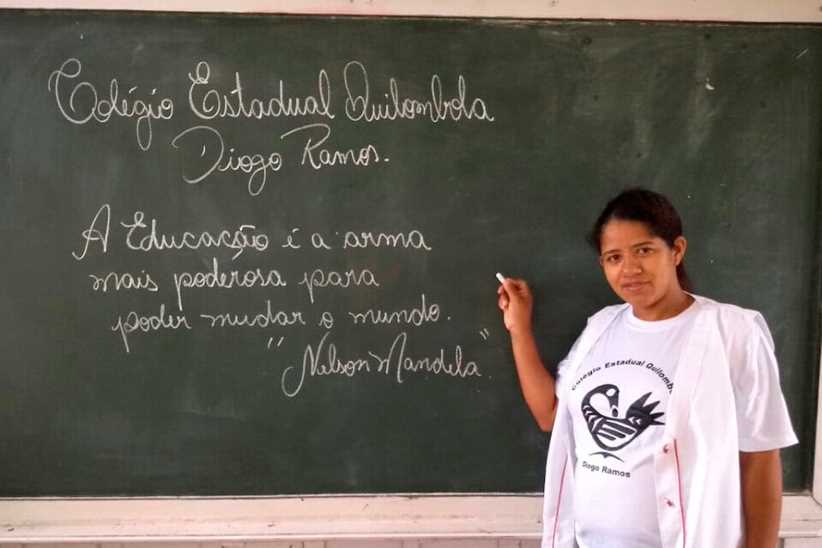 Colégio Estadual Quilombola
Diogo Ramos.
A Educação é a arma
mais poderosa para
poder mudar o mundo.
"Nelson Mandela."
Colégio Estadual Quilomb
Diogo Ramos